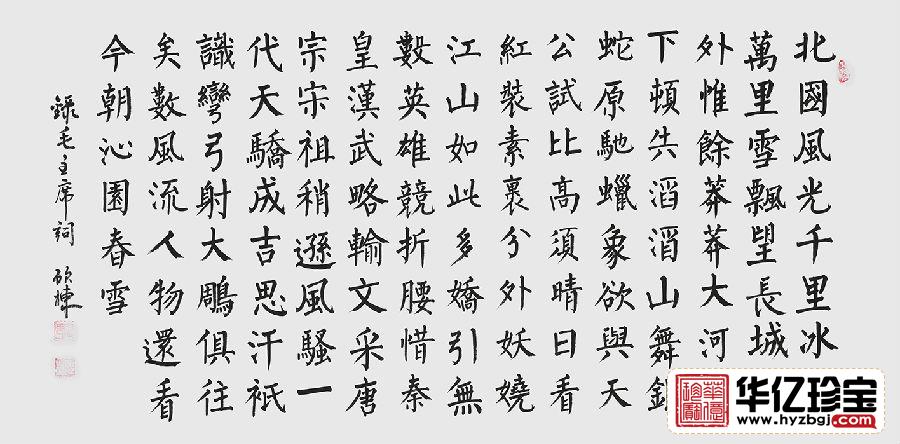 北國風光千里冰
萬里雪飄望長城
外惟餘莽莽大河
下頓失滔滔山舞銀
蛇原馳蠟象欲與天
公試比高須晴日看
紅裝素裹分外妖嬈
江山如此多嬌引無
數英雄競折腰惜秦
皇漢武略輸文采唐
宗宗祖稍遜風騷一
代天驕成吉思汗衹
識彎弓射大鵰俱往
矣數風流人物還看
今朝沁園春雪
錄毛主席詞
华亿珍宝
www.hyzbgj.com